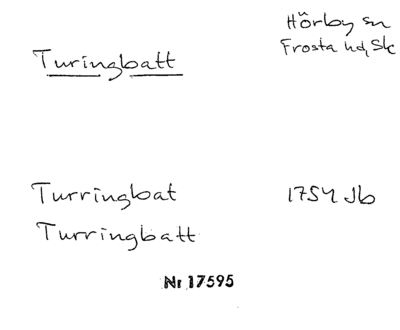 Hörby sn
Turingbatt
Frosta hd, Sk
Turringbat 1754 Jb
Turringbatt
Nr 17595